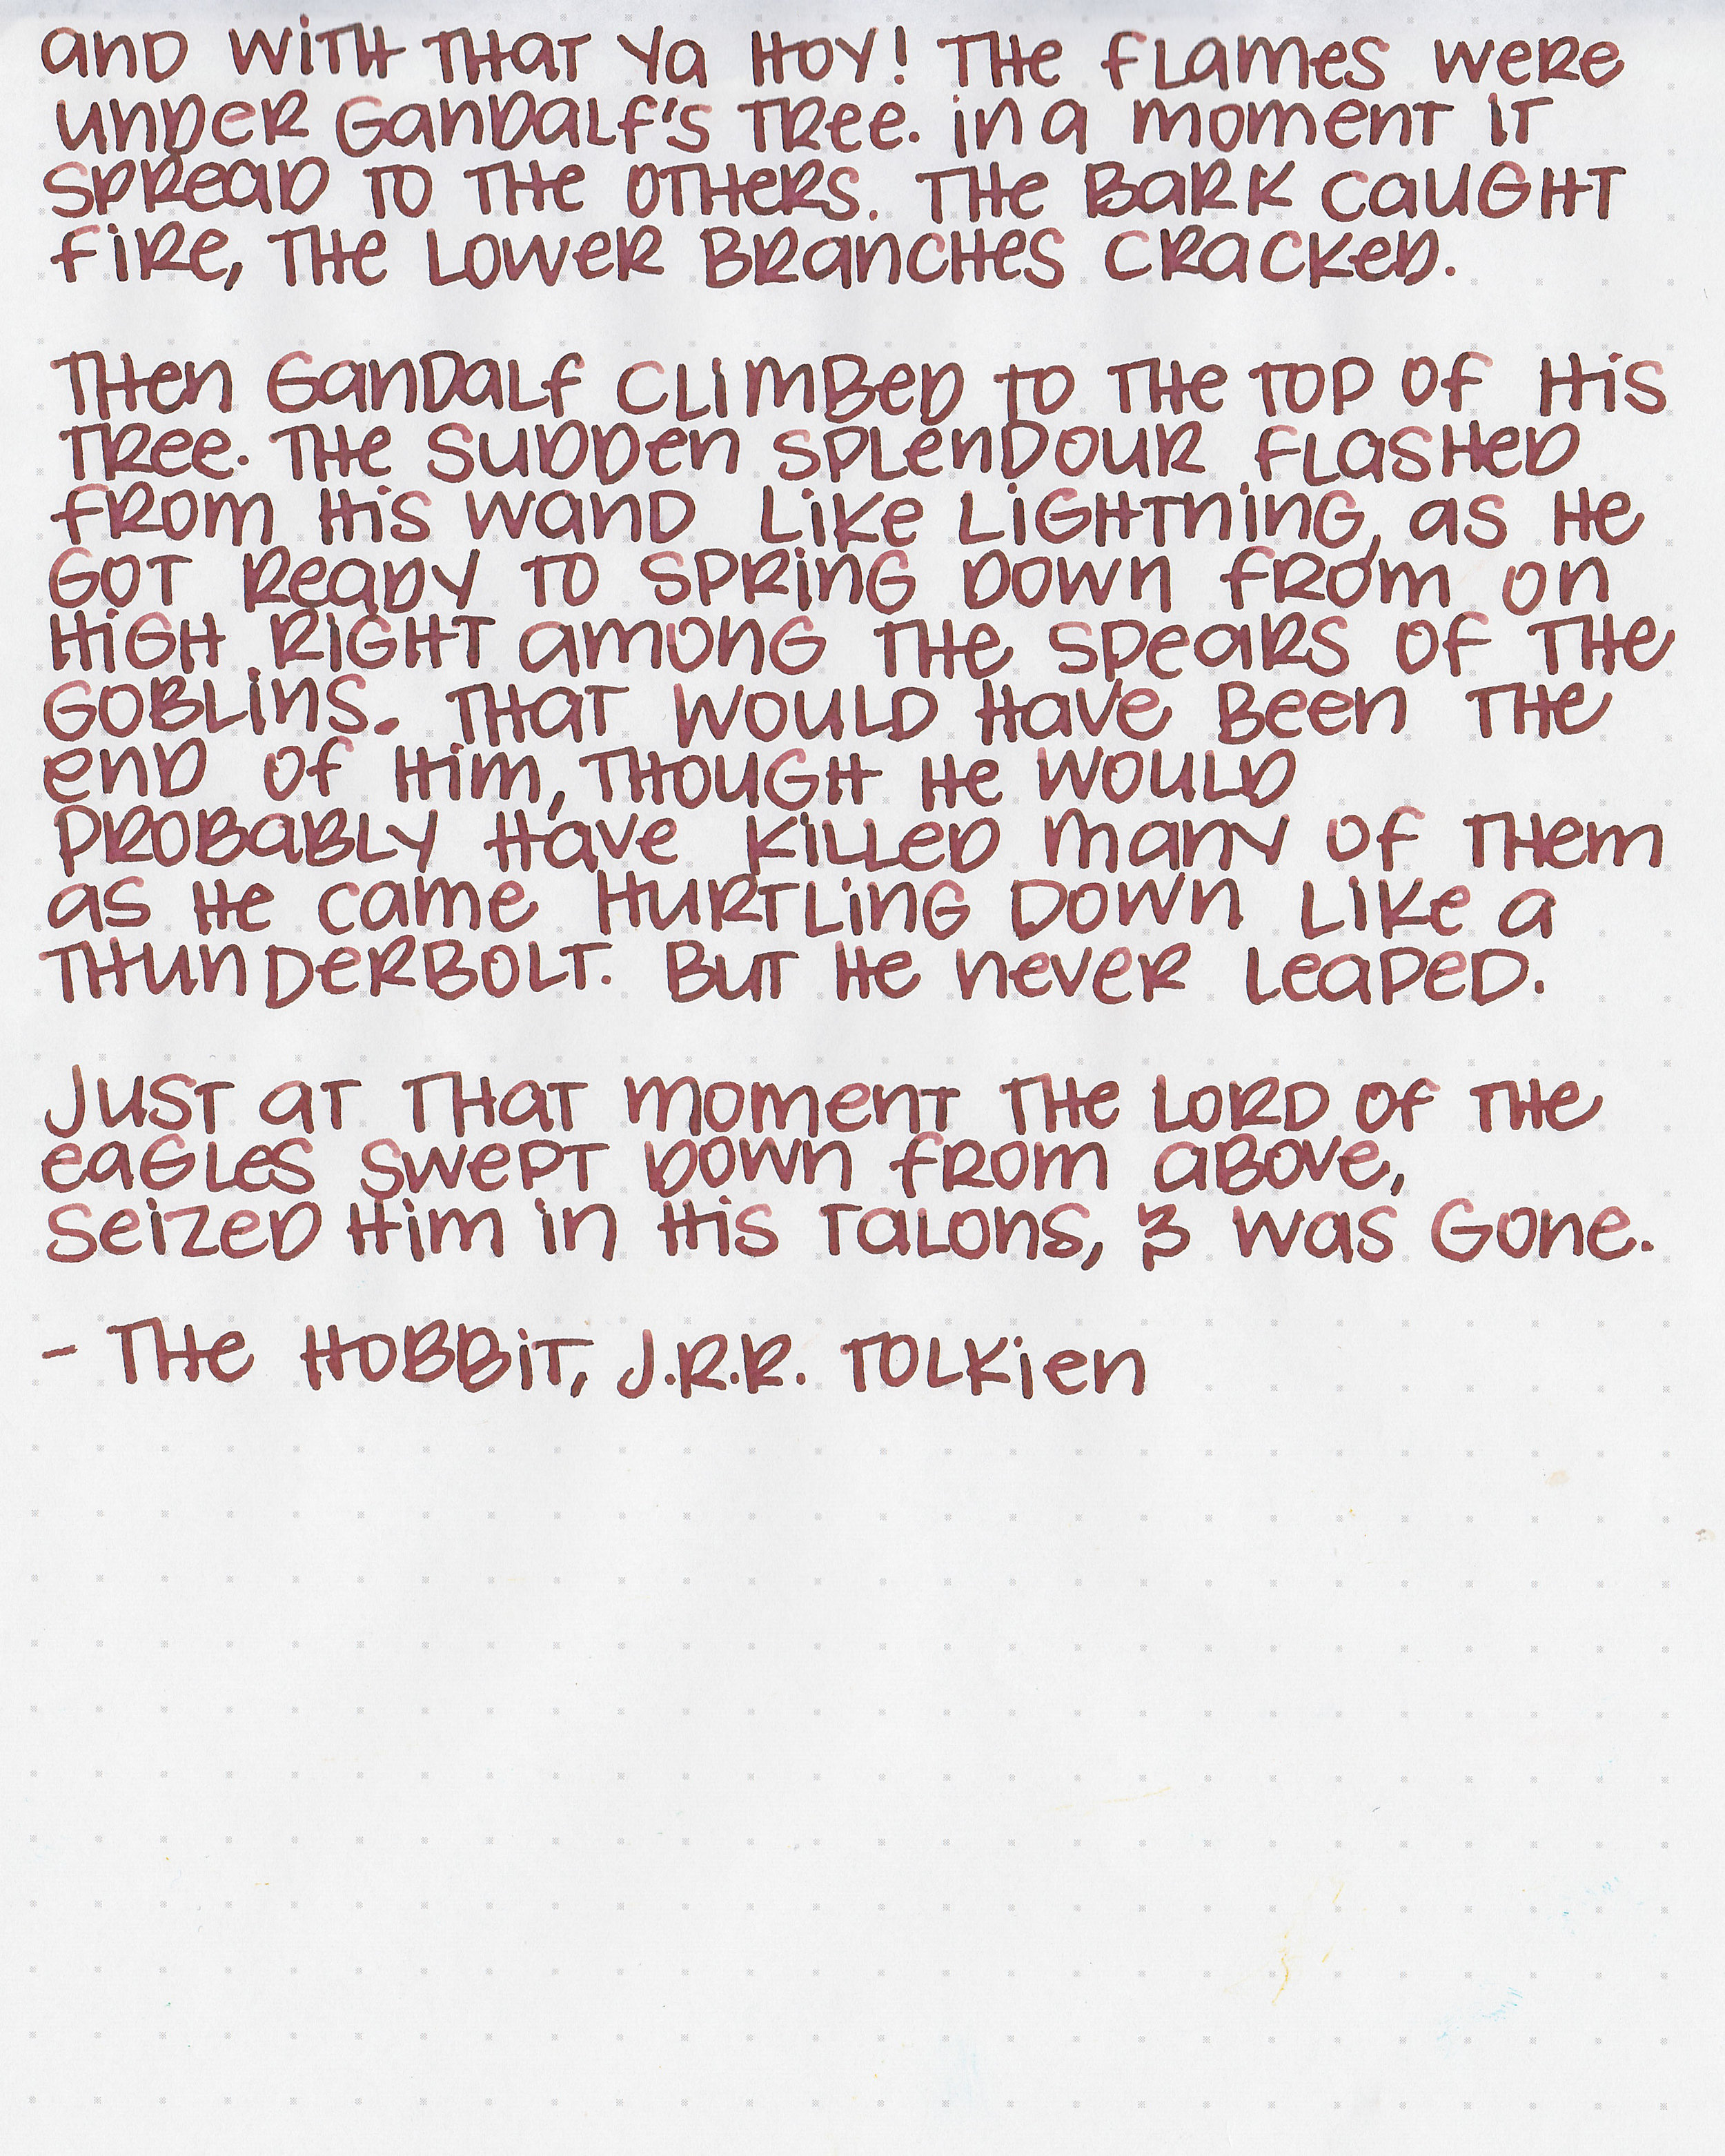 and with that Ya hoy! The flames were
under Gandalf's tree. in a moment it
spread to the others. The bark caught
fire, the lower branches cracked.

Then Gandalf climbed to the top of his
tree. The sudden splendour flashed
from his wand like lightning, as he
got ready to spring down from on
high right among the spears of the
goblins. That would have been the
end of him, though he would
probably have killed many of them
as he came hurtling down like a
thunderbolt. But he never leaped.

Just at that moment the Lord of the
eagles swept down from above,
seized him in his talons, & was gone.

- The Hobbit, J.R.R. Tolkien